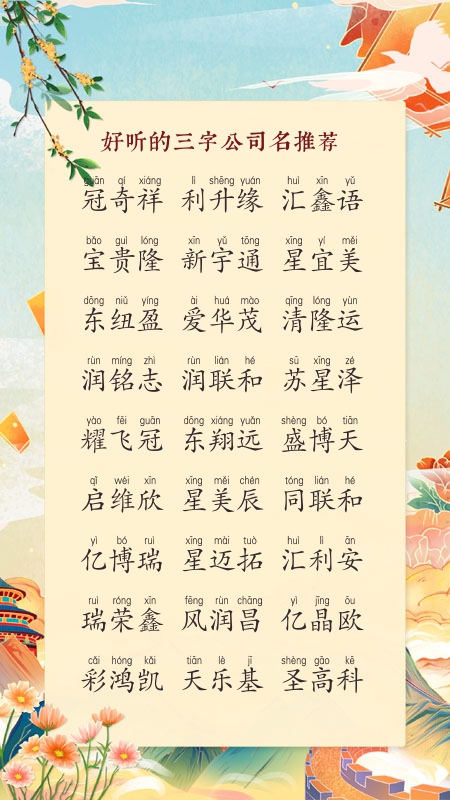 好听的三字公司名推荐
guān qí xiáng lì shēng yuán huì xīn yǔ
冠奇祥 利升缘 汇鑫语
bǎo guì lóng xīn yǔ tōng xīng yí měi
宝贵隆 新宇通 星宜美
dōng niǔ yíng ài huá mào qīng lóng yùn
东纽盈 爱华茂 清隆运
rùn míng zhì rùn lián hé sū xīng zé
润铭志 润联和 苏星泽
yào fēi guān dōng xiáng yuǎn shèng bó tiān
耀飞冠 东翔远 盛博天
qǐ wéi xīn xīng měi chén tóng lián hé
启维欣 星美辰 同联和
yì bó ruì xīng mài tuò huì lì ān
亿博瑞 星迈拓 汇利安
ruì róng xīn fēng rùn chāng yì jīng ōu
瑞荣鑫 风润昌 亿晶欧
cǎi hóng kǎi tiān lè jī shèng gāo kē
彩鸿凯 天乐基 圣高科